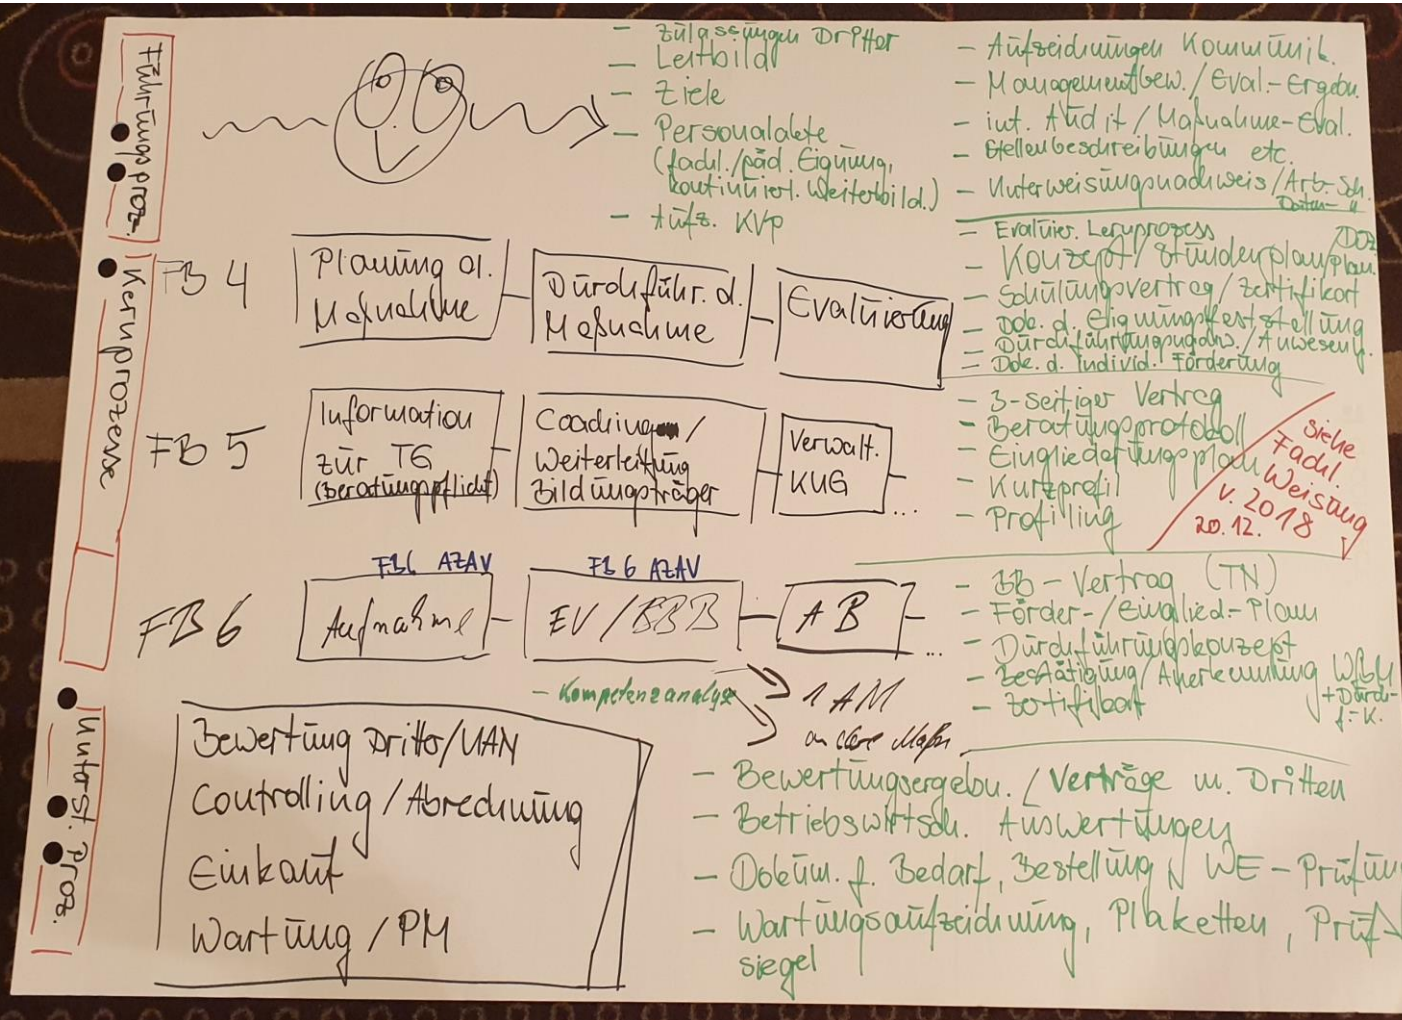 Führungsproz.
- Zulassungen Dritter
- Leitbild
- Ziele
- Personalakte
(fachl./päd. Eignung,
kontinuierl. Weiterbild.)
- Aufz. KVP
- Aufzeichnungen Kommunik.
- Managementbew./Eval.-Ergebn.
- int. Audit/Maßnahme-Eval.
- Stellenbeschreibungen etc.
- Unterweisungsnachweis/Arb.-Sch.
Daten- "
Kernprozesse
FB 4
Planung d.
Maßnahme
Durchführ. d.
Maßnahme
Evaluierung
- Evaluier. Lernprozess
- Konzept/Stundenplan/plan.
/Doz
- Schulungsvertrag/Zertifikat
- Dok. d. Eignungsfeststellung
- Durchführungsnachw./Anwesenh.
- Dok. d. individ. Förderung
FB 5
Information
zur TG
(Beratungspflicht)
Coaching/
Weiterleitung
Bildungsträger
Verwalt.
KUG
...
- 3-seitiger Vertrag
- Beratungsprotokoll
- Eingliederungsplan
- Kurzprofil
- Profiling
siehe
Fachl.
Weisung
v. 2018
20.12.
FB 6
FB6 AZAV
Aufnahme
FB 6 AZAV
EV/BBB
AB
...
- Kompetenzanalyse
1 AM
andere Maßn.
- BB-Vertrag (TN)
- Förder-/Einglied-Plan
- Durchführungskonzept
- Bestätigung/Anerkennung WfbM
+Durch-
f.-K.
- Zertifikat
Unterst. Proz.
Bewertung Dritter/UAN
Controlling/Abrechnung
Einkauf
Wartung/PM
- Bewertungsergebn./Verträge m. Dritten
- Betriebswirtsch. Auswertungen
- Dokum. f. Bedarf, Bestellung, WE-Prüfun
- Wartungsaufzeichnung, Plaketten, Prüf-
siegel